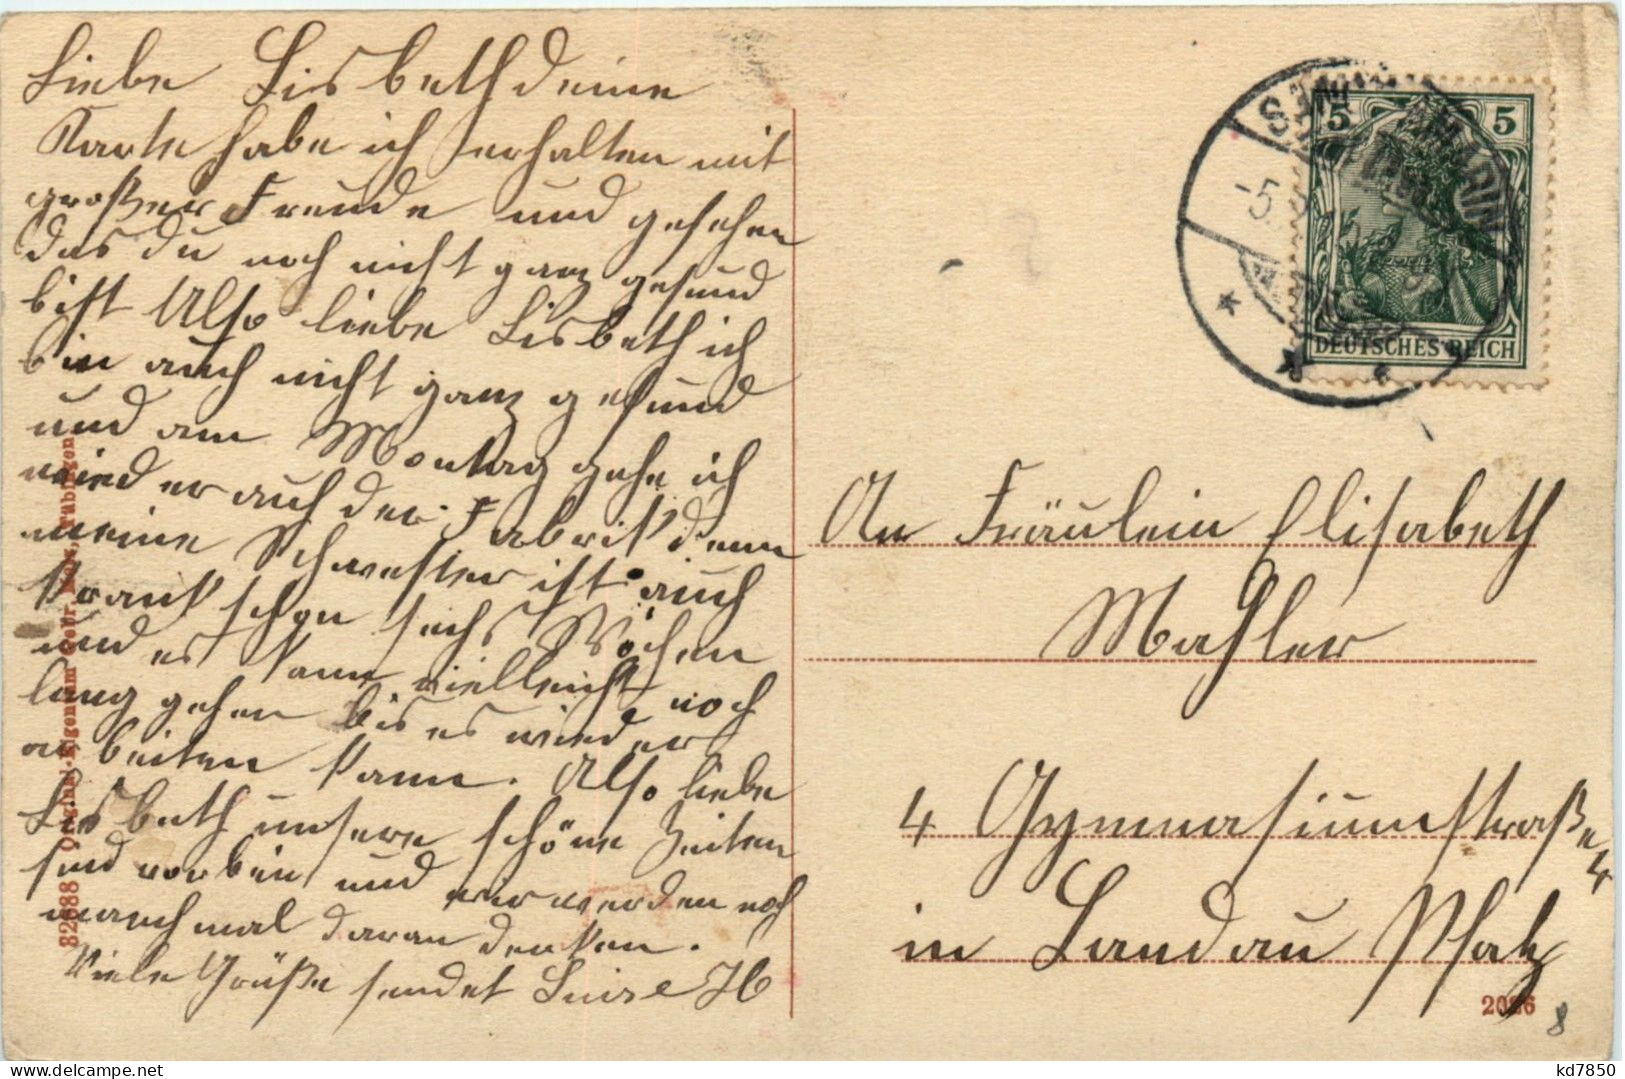 Liebe Lisbeth deine
Karte habe ich erhalten mit
großer Freude und gesehen
das du noch nicht ganz gesund
bist Also liebe Lisbeth ich
bin auch nicht ganz gesund
und am Montag gehe ich
wieder auch der Fabrik denn
meine Schwester ist auch
krank schon sechs Wochen
und es kann vielleicht noch
lang gehen bis es wieder
arbeiten kann. Also liebe
Lisbeth unsere schöne Zeiten
sind vorbei und wir werden noch
manchmal daran denken.
Viele Grüße sendet Luise H
82688 Original-Eigentum Gebr. Tübingen
5 5
DEUTSCHES REICH
5
An Fräulein Elisabeth
Mahler
4 Gymnasiumstraße 4
in Landau Pfalz
2086
8
kd7850